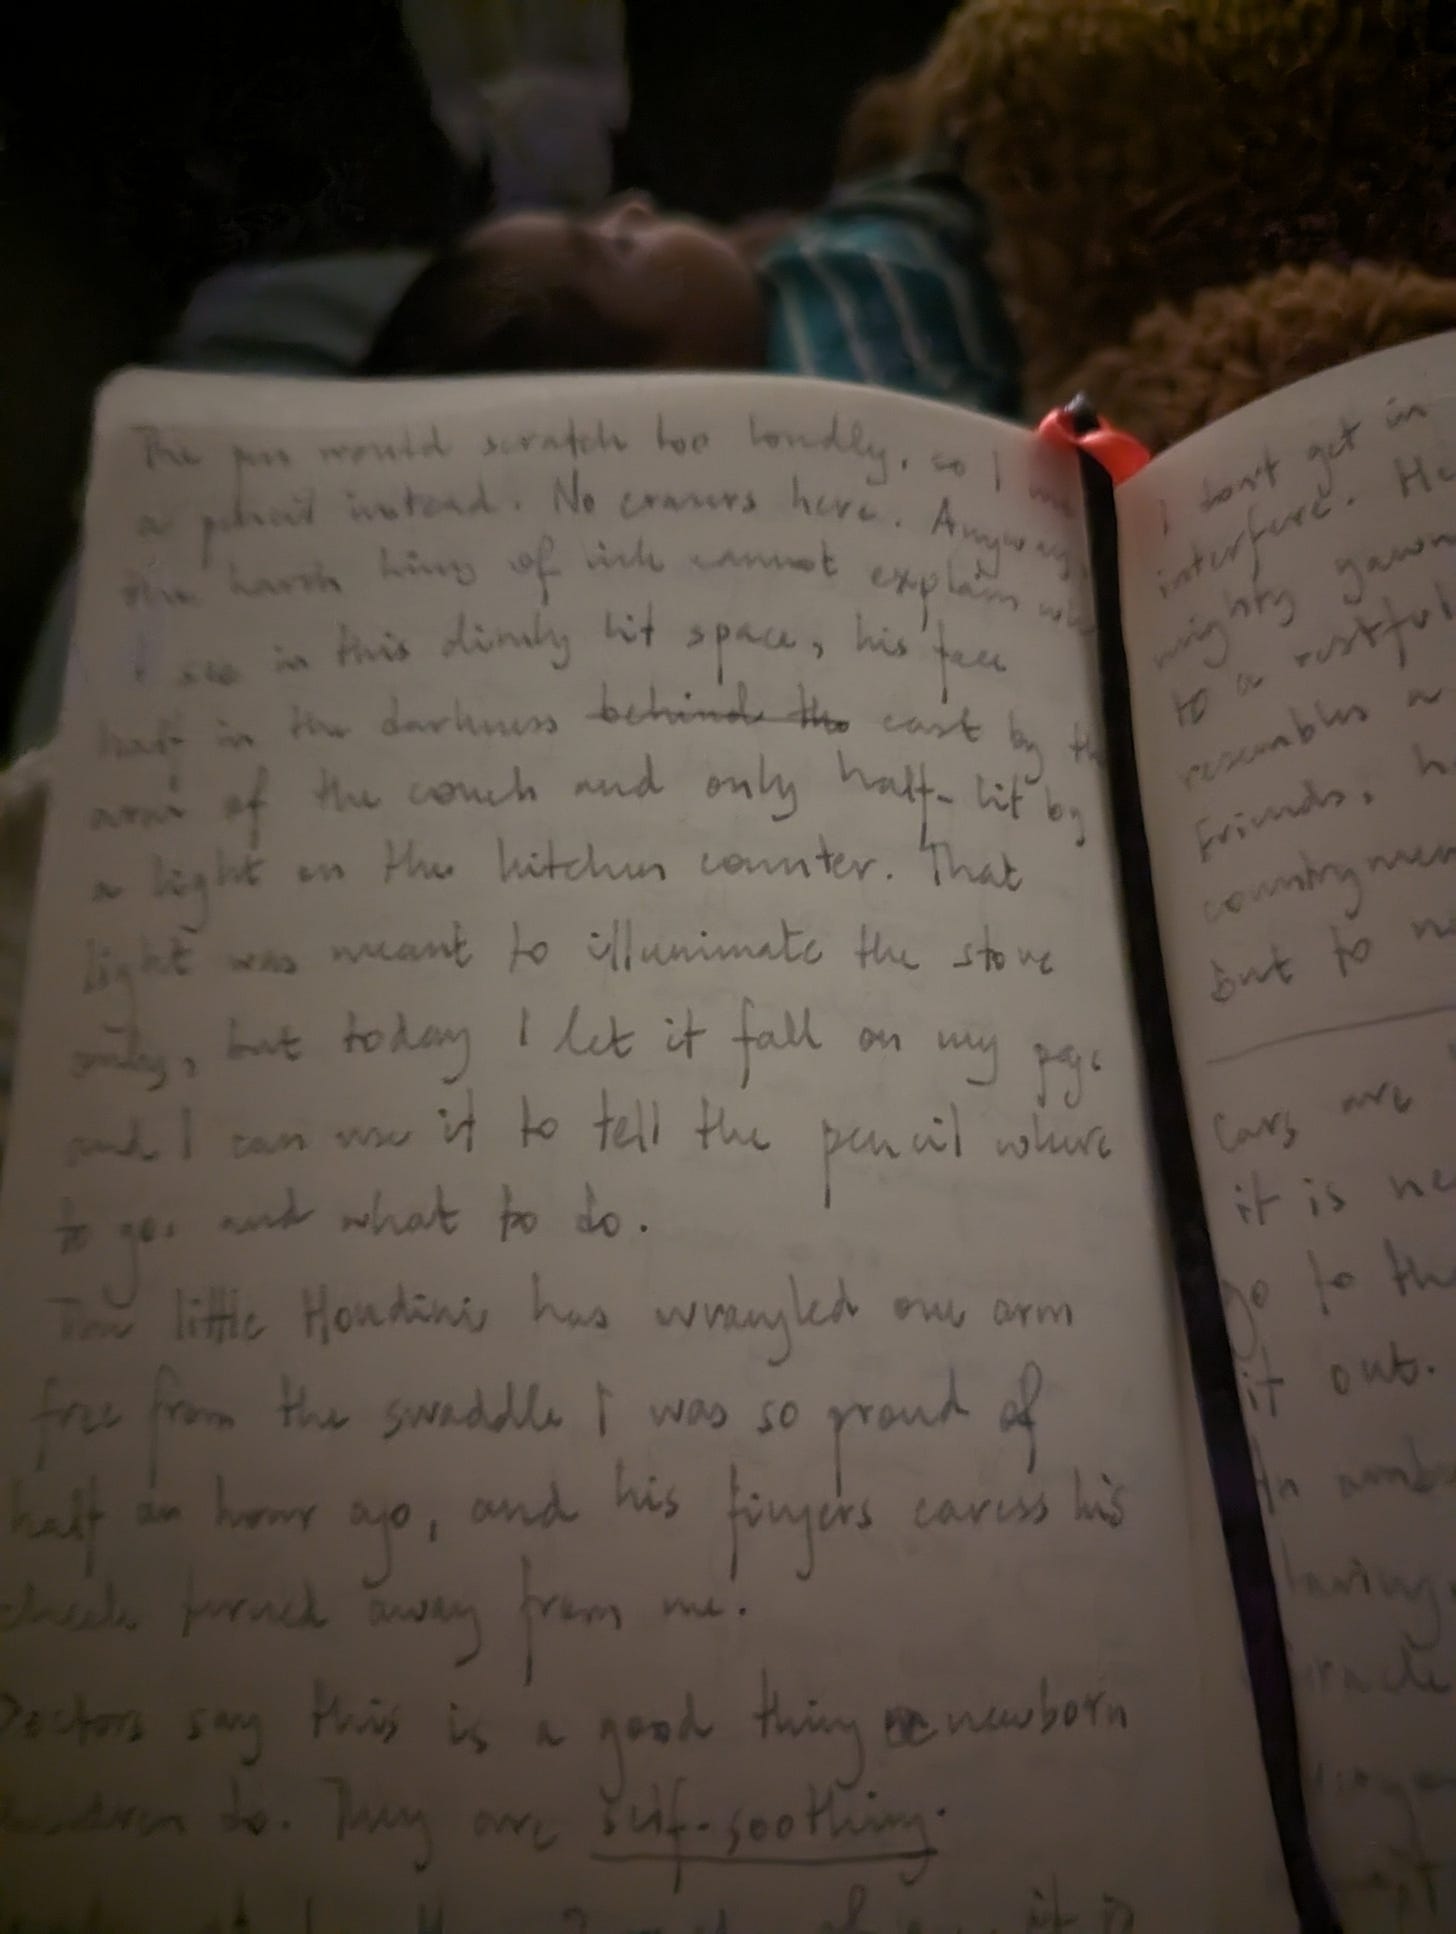 The pen would scratch too loudly, so I
a pencil instead. No erasers here. Anyway,
the harsh of ink cannot explain
I see in this dimly lit space, his face
half in the darkness behind the cast by the
arm of the couch and only half-lit by
a light on the kitchen counter. That
light was meant to illuminate the stove
only, but today I let it fall on my page
and I can use it to tell the pencil where
to go, and what to do.
The little Houdini has wrangled one arm
free from the swaddle I was so proud of
half an hour ago, and his fingers caress his
cheek turned away from me.
Doctors say this is a good thing newborn
do. They are self-soothing.
I don't get in
interfere. He
mighty yawn
to a restful
resembles a
Friends,
countrymen
but to
Cars are
it is
go to the
it out.